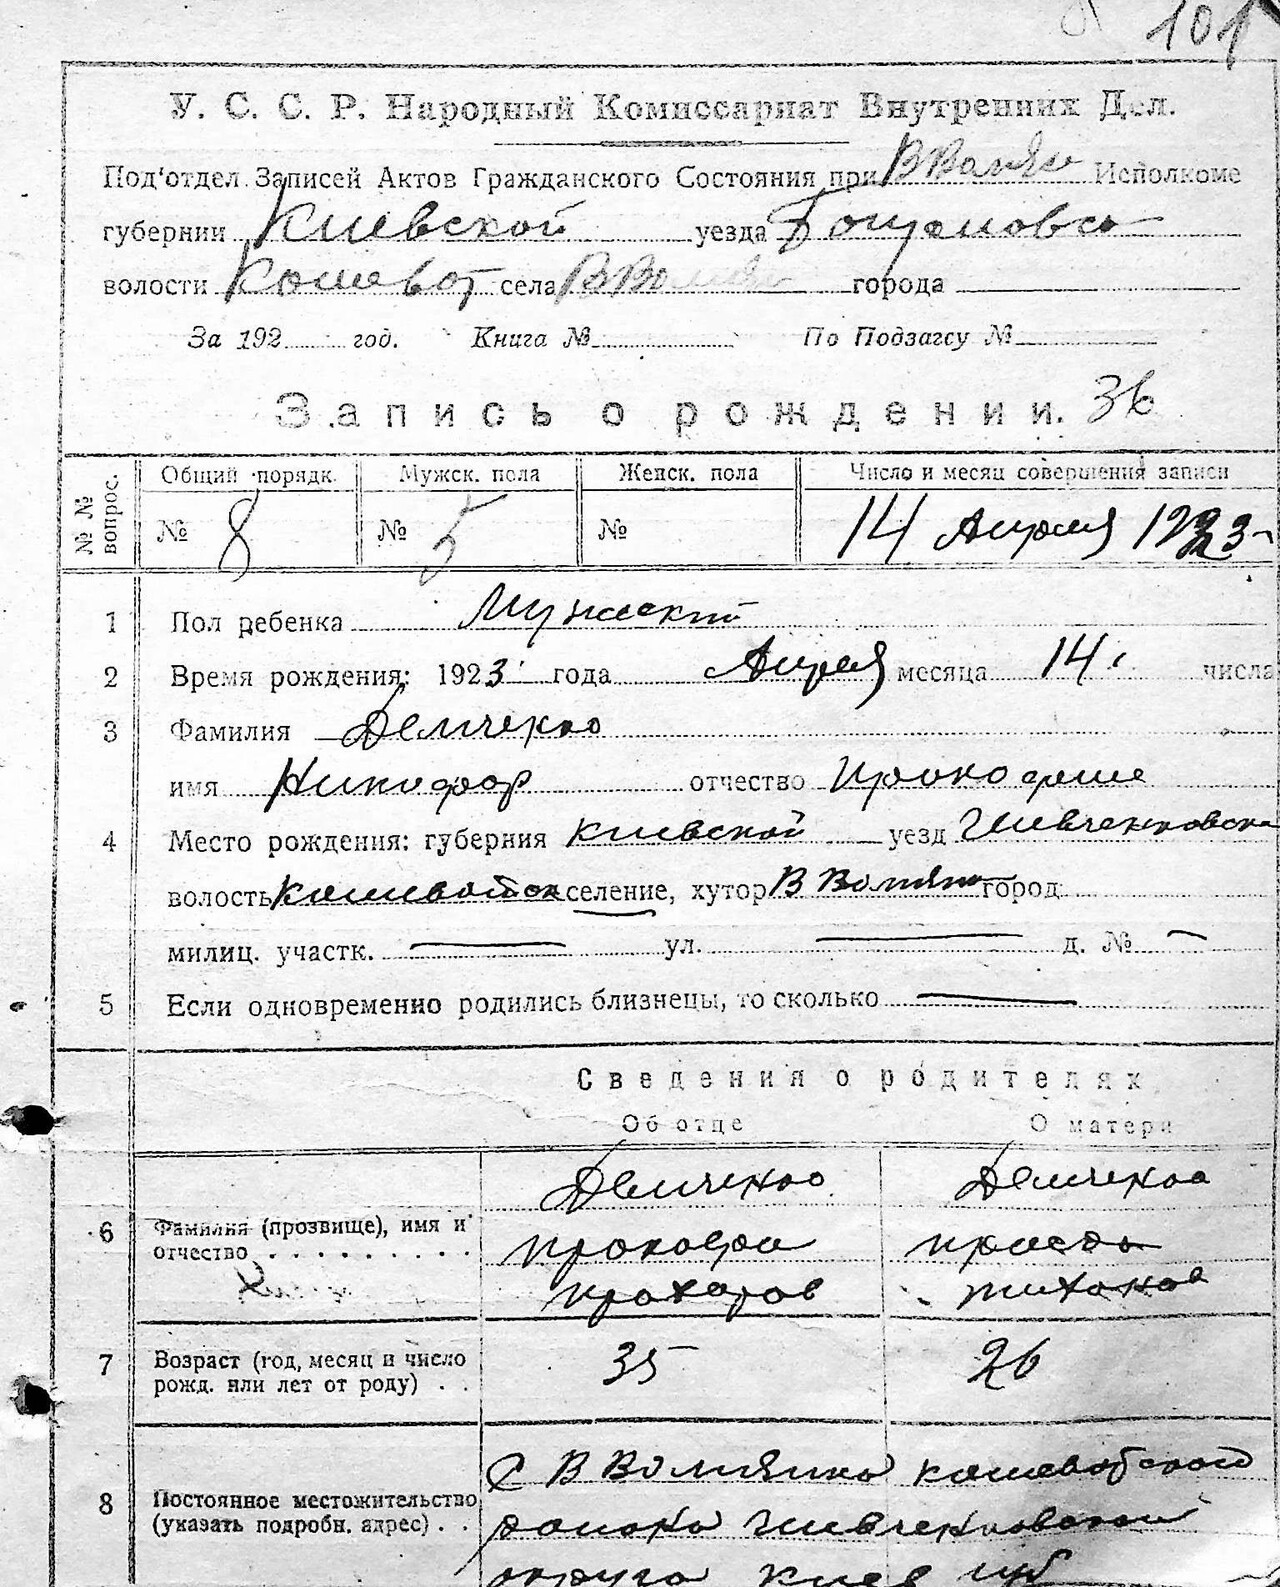 101
У. С. С. Р. Народный Комиссариат Внутренних Дел.
Под'отдел Записей Актов Гражданского Состояния при Исполкоме
губернии Киевской уезда
волости Кошеват села города
За 192 год. Книга № По Подзагсу №
Запись о рождении. 36
№№ вопрос. Общий порядк. Мужск. пола Женск. пола Число и месяц совершения записи
№ 8 № 5 № 14 Апреля 1923
1 Пол ребенка Мужеский
2 Время рождения: 1923 года Апреля месяца 14 числа
3 Фамилия Демченко
имя Никифор отчество Прокофиев
4 Место рождения: губерния Киевской уезд Шевченковска
волость Кошеватск селение, хутор город
милиц. участк. — ул. — д. № —
5 Если одновременно родились близнецы, то сколько —
Сведения о родителях
Об отце О матери
Демченко Демченко
6 Фамилия (прозвище), имя и отчество Прокофи
Прохоров Тихонов
7 Возраст (год, месяц и число рожд. или лет от роду) 35 26
С В кошеватской
8 Постоянное местожительство (указать подробн. адрес) района Шевченковской
округа Киев губ